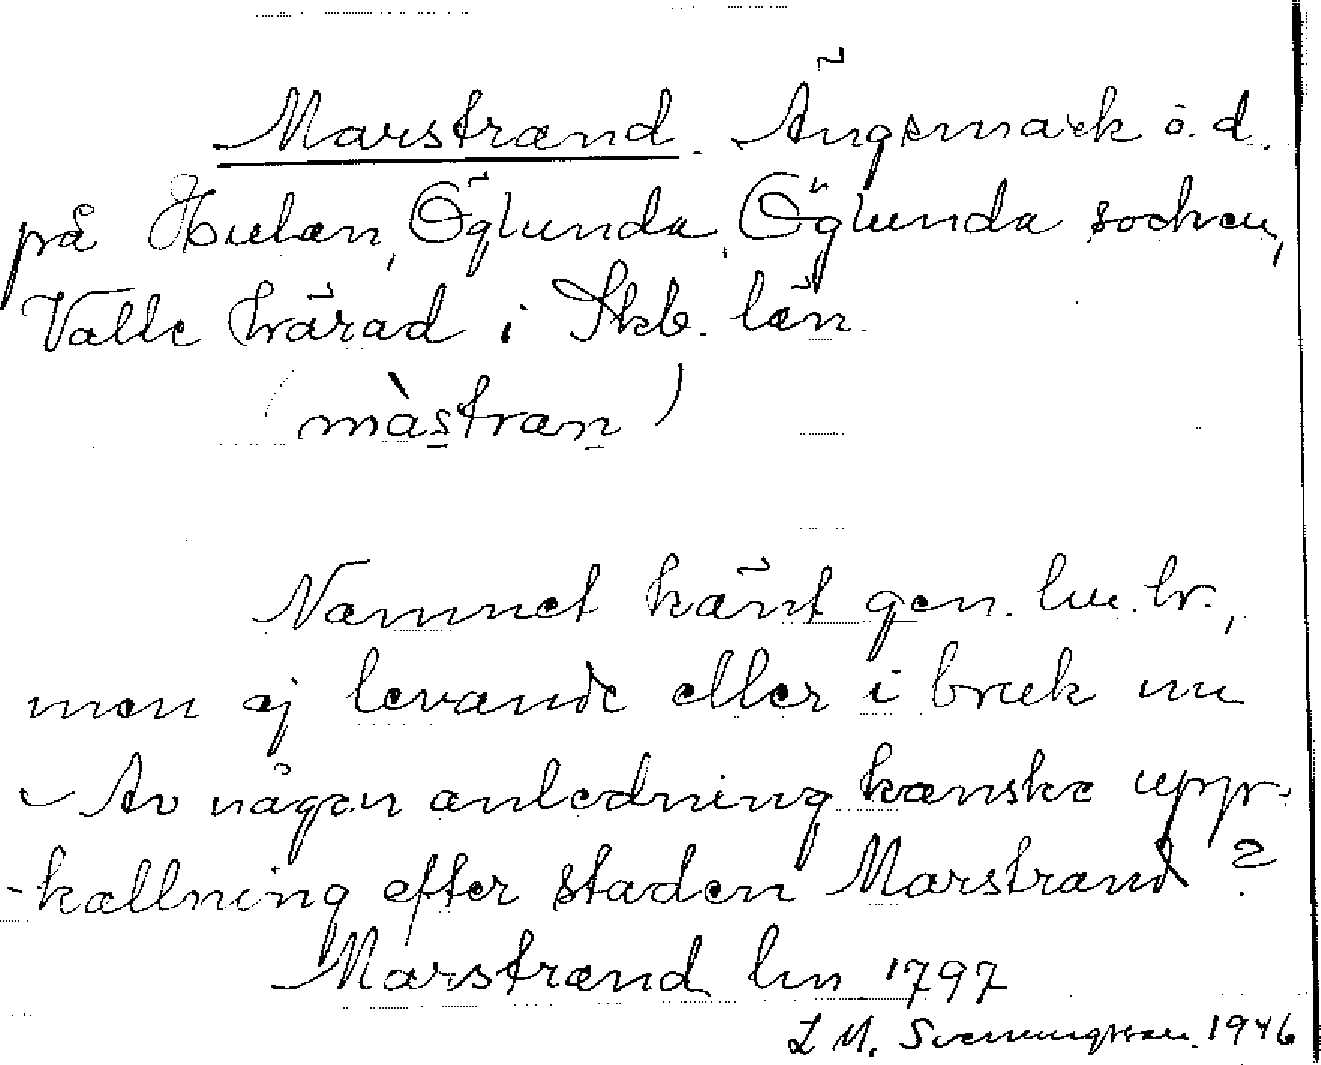 Marstrand. Ängsmark ö. d.
på Hulan, Öglunda, Öglunda socken,
Valle härad i Skb. län.
(màstran)
Namnet känt gen. lm. br.,
men ej levande eller i bruk nu
- Av någon anledning kanske upp-
-kallning efter staden Marstrand?
Marstrand lm 1797
L M. Svenungsson. 1946